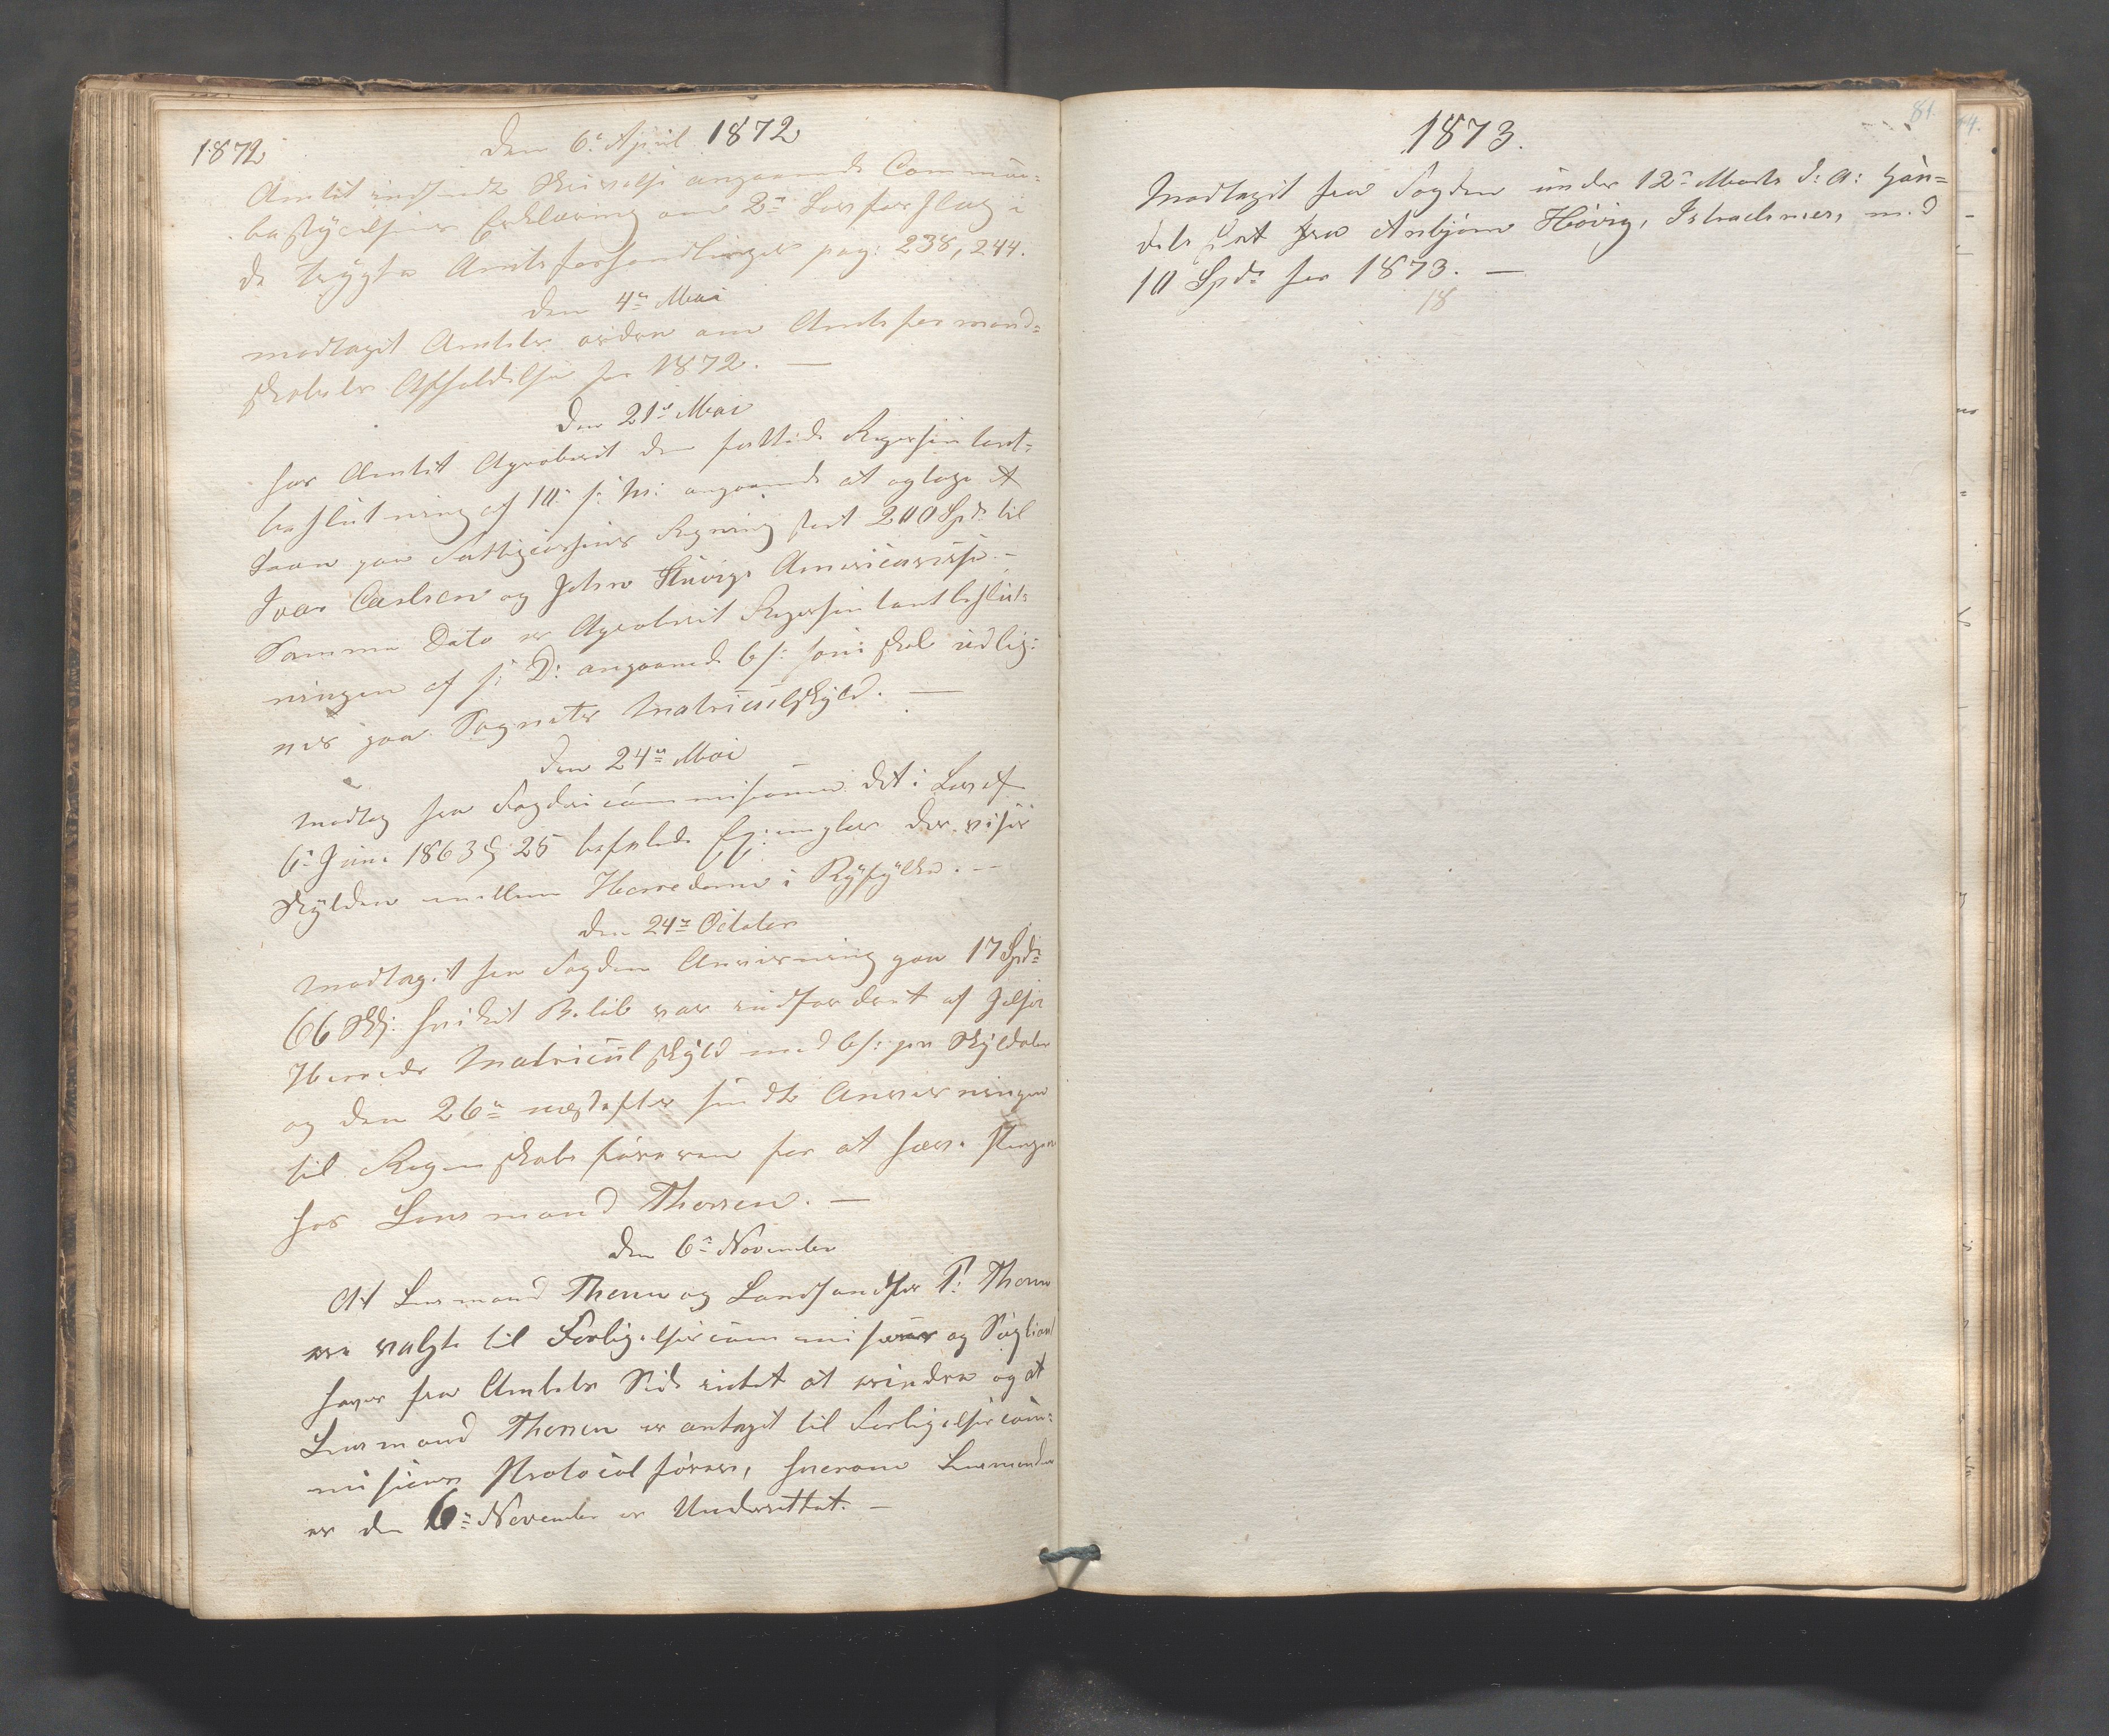 1872
den 6te April 1872
Amtet indsendte Skrivelse angaaende Commüne-
bestyrelsens Erklæring om 2de Lovforslag i
de trygte Amtsforhandlinger pag: 238, 244.
den 4de Mai
modtaget Amtets ordre om Amtsformand-
skabets Afholdelse for 1872. —
den 21de Mai
har Amtet Aprobert den fattede Repræsentant-
beslutning af 10: f: M: angaaende at optage et
Laan paa Fattigcassens Regning stort 200 Spd: til
Ivar Carlsen og John Americareise. —
Samme Dato er Aprobert Repræsentantbeslut-
ningen af s: D: angaaende 6 s: som skal udlig-
nes paa Sognets Matriculskyld. —
den 24de Mai
modtog fra Fogden det i Lov af
6te Juni 1863 § 25 befalede Exemplar der viser
Skylden mellem Herrederne i Ryfylke. —
den 24de October
modtaget fra Fogden Anvisning paa 17 Spd:
66 Sk: hvilket Beløb var indfordret af Jelse
Herreds Matricülskyld med 6 s: pr Skylddaler
og den 26de næstefter sendte Anvisningen
til Regnskabsføreren for at hæve Penger
hos Lensmand Thorsen. —
den 6te November
At Lensmand Thorsen og Landhandler T: Thorsen
ere valgte til Forligelsescommisærer og
haver fra Amtets Side intet at erindre og at
Lensmand Thorsen er antaget til Forligelsescom-
misionens Protocolfører, hvorom Lensmanden
er den 6te November er Underrettet. —
81.
1873.
Modtaget fra Fogden under 12te Marts d: A: Han-
dels fra Asbjørn Høvig, Istrachmer, med
10 Spd: for 1873. —
18